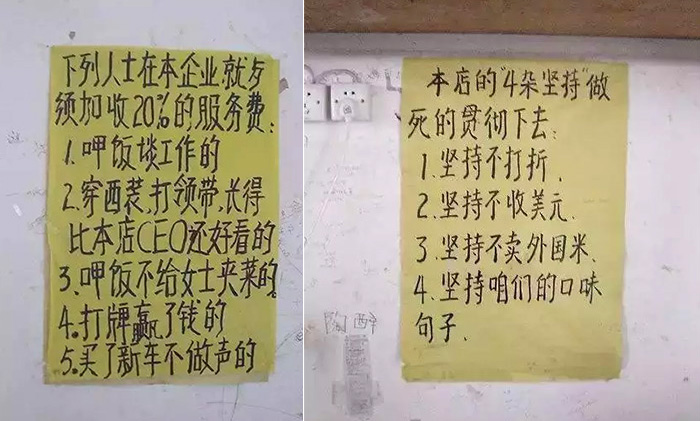 下列人士在本企业就歺
须加收20%的服务费:
1.呷饭谈工作的
2.穿西装,打领带,长得
比本店CEO还好看的
3.呷饭不给女士夹菜的
4.打牌赢了钱的
5.买了新车不做声的
本店的"4朵坚持"做
死的贯彻下去:
1.坚持不打折.
2.坚持不收美元.
3.坚持不卖外国米.
4.坚持咱们的口味
句子.
陶醉